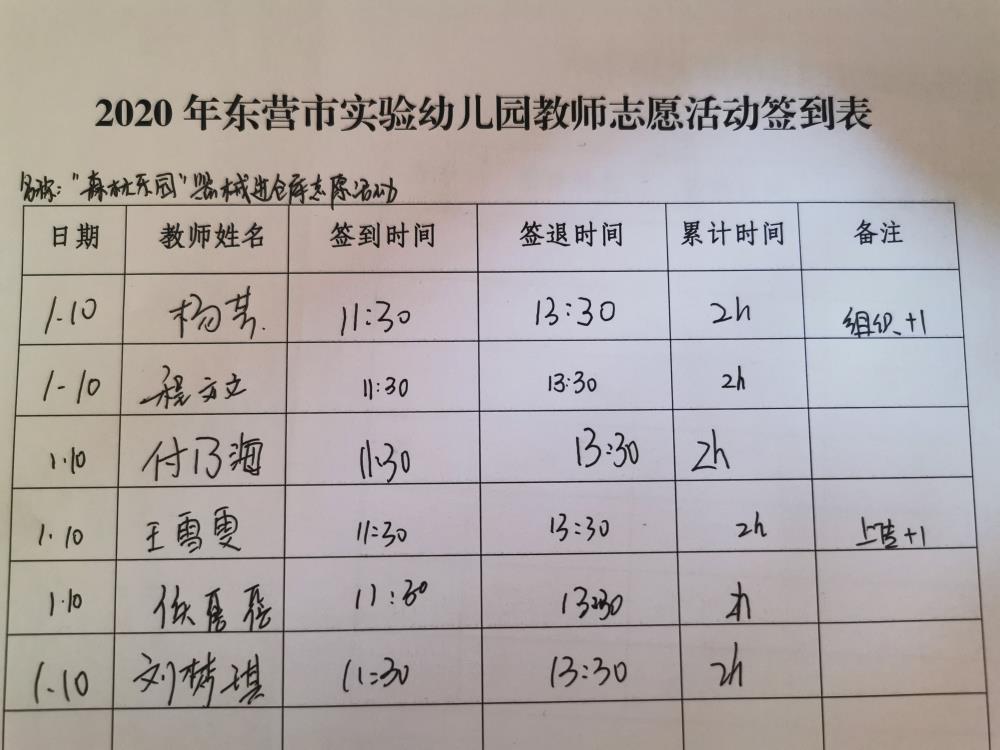 2020 年东营市实验幼儿园教师志愿活动签到表
名称:"森林乐园"器械进仓库志愿活动
日期 教师姓名 签到时间 签退时间 累计时间 备注
1.10 杨芳. 11:30 13:30 2h 组织+1
1-10 程方文 11:30 13:30 2h
1.10 付乃海 11:30 13:30 2h
1.10 王雪雯 11:30 13:30 2h +1
1.10 11:30 13:30 2h
1.10 刘梦琪 11:30 13:30 2h